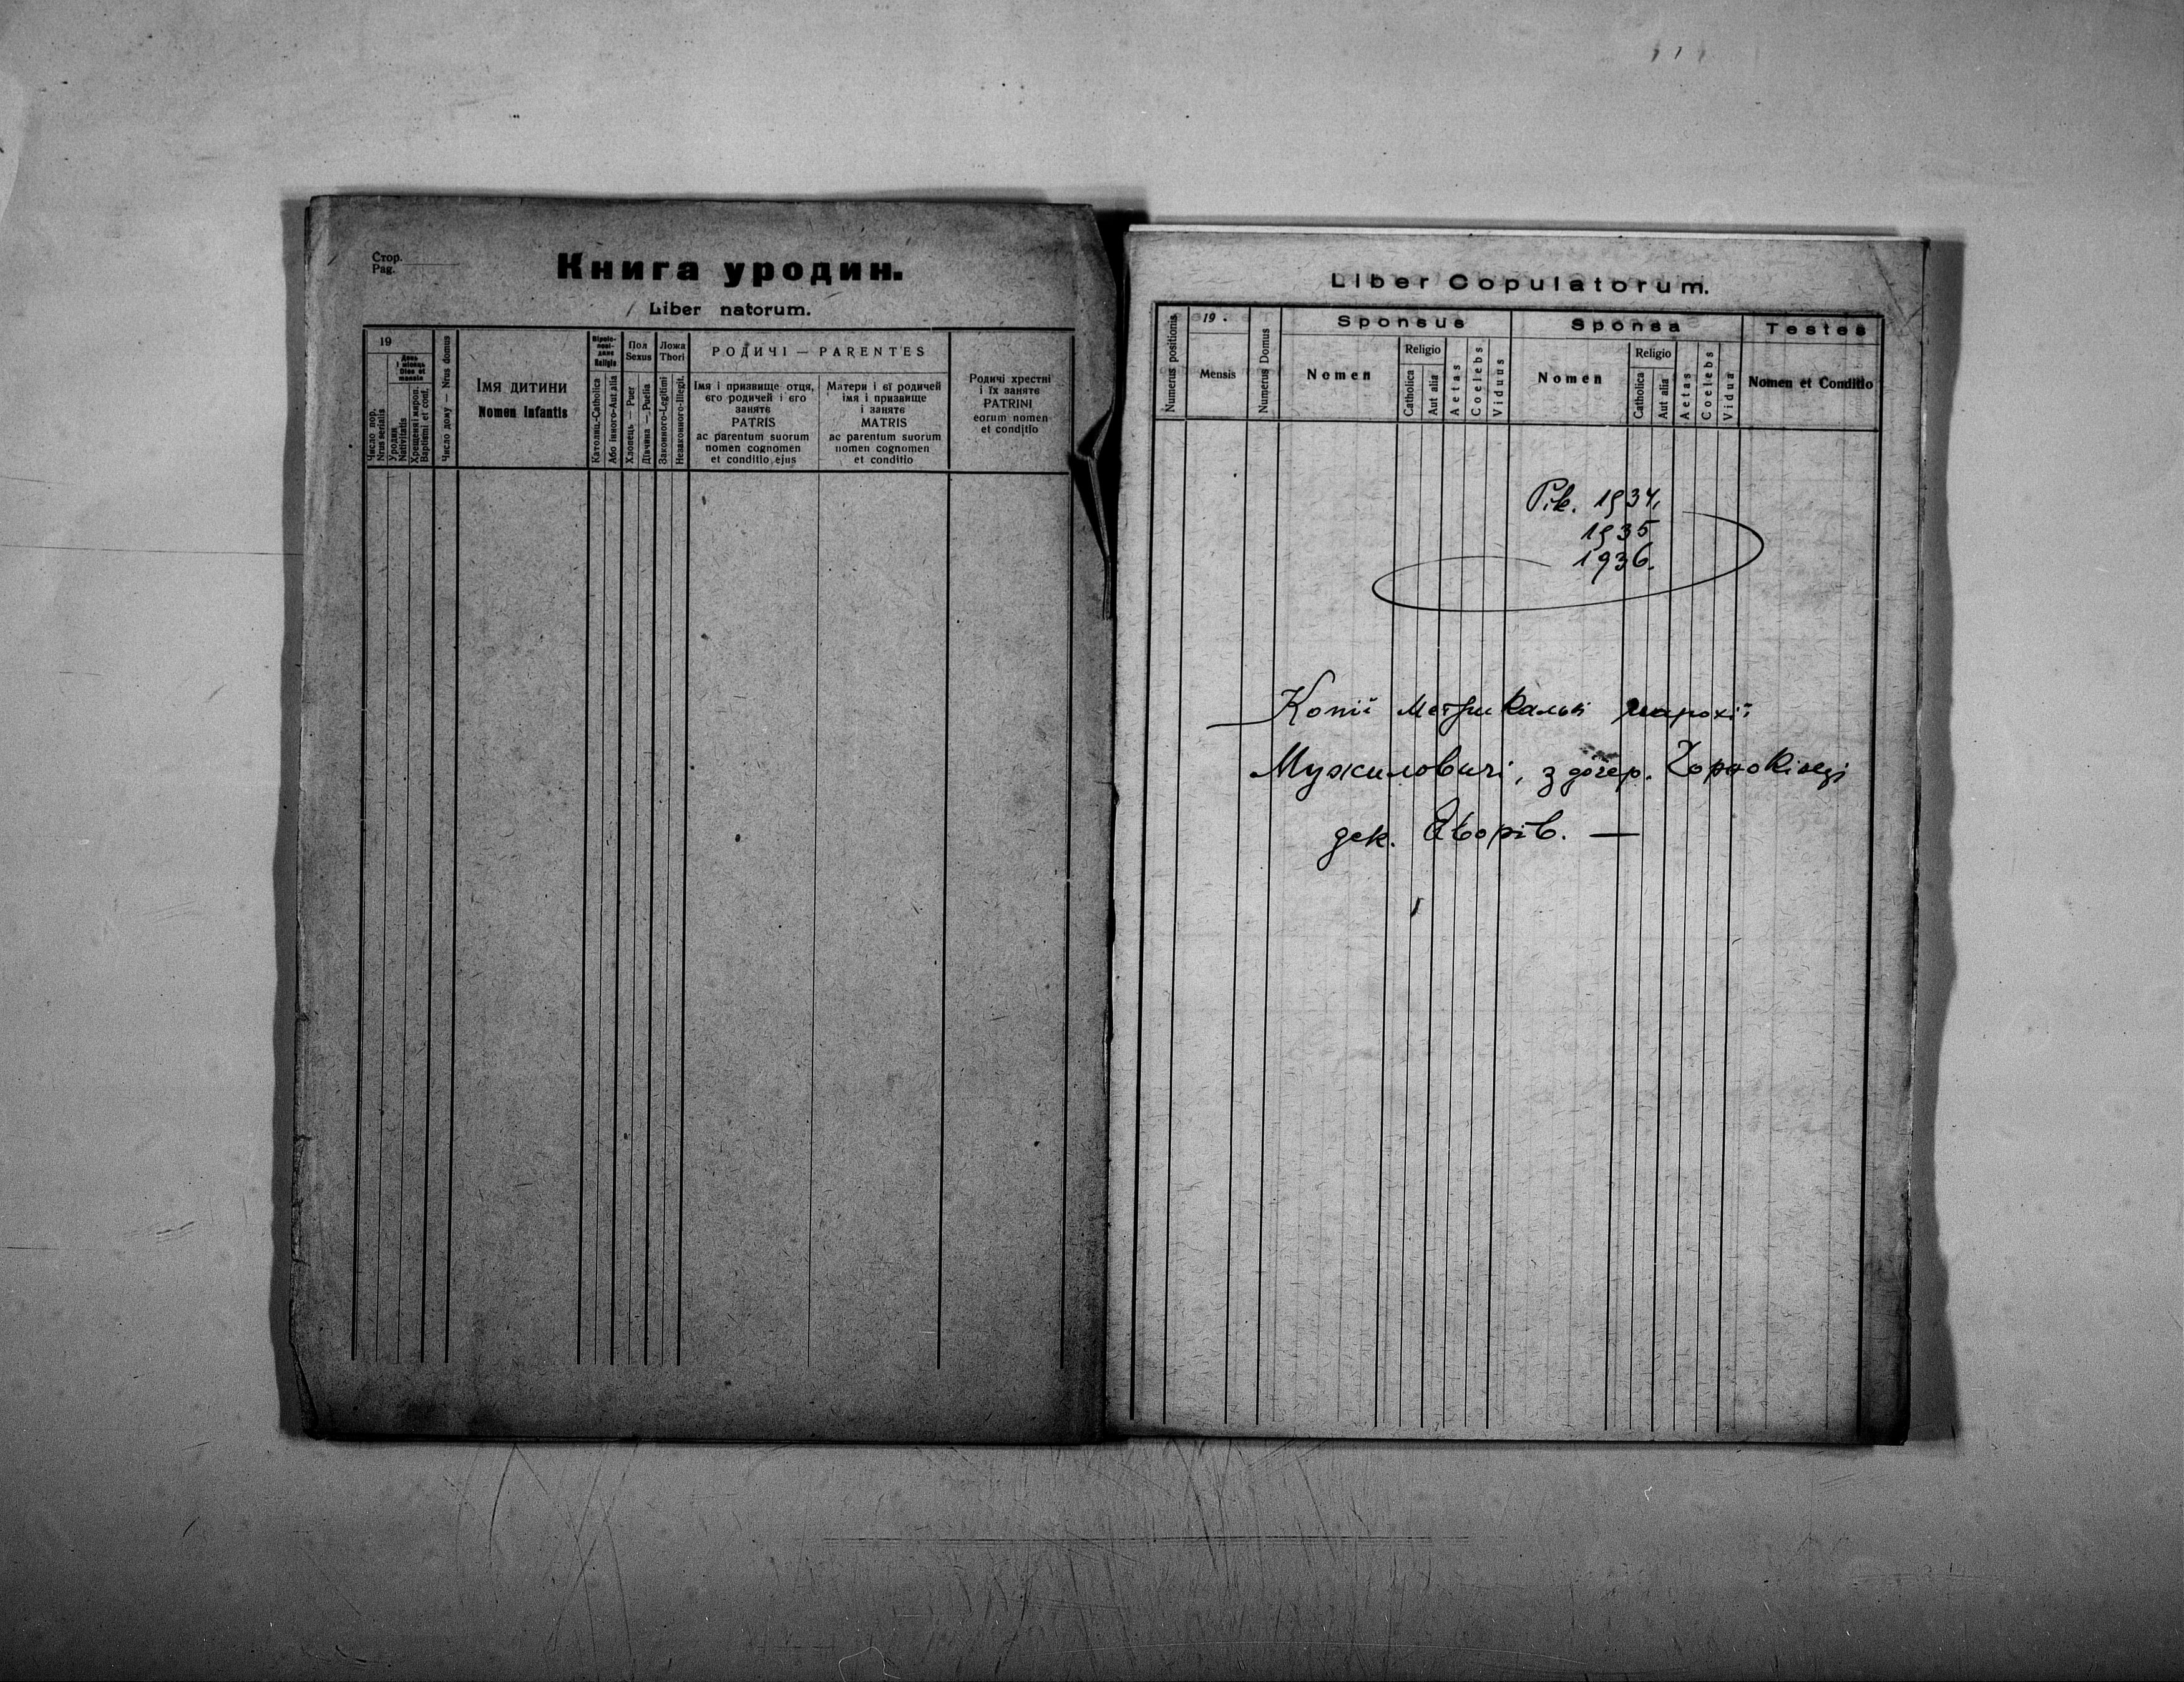 Стор.
Pag.
Книга уродин.
Liber natorum.
19
День і місяць
Dies et mensis
Число пор.
Nrus serialis
Уродин
Nativitatis
Хрещеня і миров.
Baptismi et conf.
Число дому — Nrus domus
Імя дитини
Nomen Infantis
Religio
Католиц.-Catholica
Або інного-Aut alia
Пол
Sexus
Хлопець — Puer
Дївчина — Puella
Ложа
Thori
Законного-Legitimi
Незаконного-Illegit.
РОДИЧІ — PARENTES
Імя і призвище отця,
єго родичей і єго
занятє
PATRIS
ac parentum suorum
nomen cognomen
et conditio ejus
Матери і єї родичей
імя і призвище
і занятє
MATRIS
ac parentum suorum
nomen cognomen
et conditio
Родичі хрестні
і їх занятє
PATRINI
eorum nomen
et conditio
Liber Copulatorum.
Numerus positionis
19 .
Mensis
Numerus Domus
Sponsus
Nomen
Religio
Catholica
Aut alia
Aetas
Coelebs
Viduus
Sponsa
Nomen
Religio
Catholica
Aut alia
Aetas
Coelebs
Vidua
Testes
Nomen et Conditio
Рік. 1934.
1935
1936.
Копії метрикальні парохії
Мужиловичі, з дочер. Чорнокінці
дек. Яворів. —